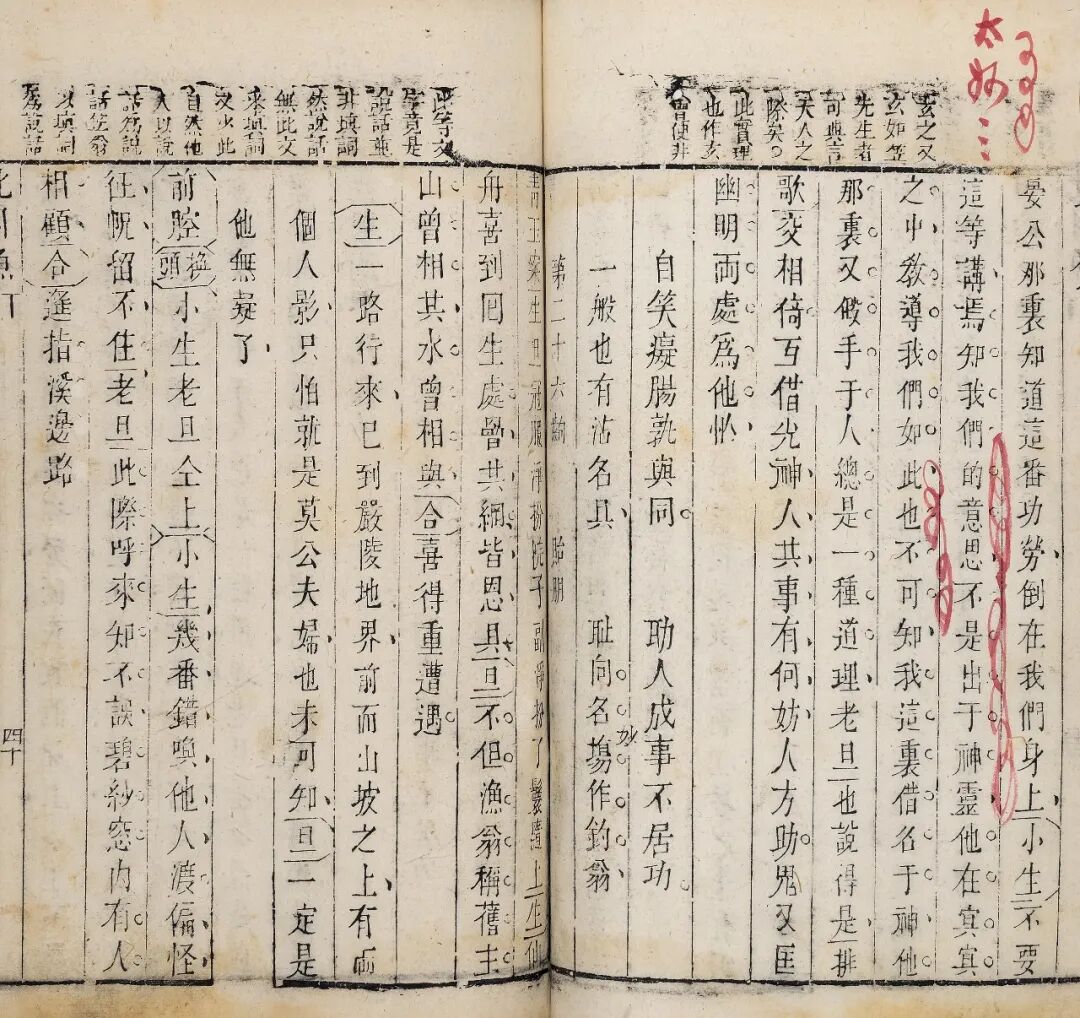 太妙三
玄之又
玄如笠
先生者
可與言
天人之
際矣
此實理
也作玄
會便非
晏公那裏知道這番功勞倒在我們身上小生不要
這等講焉知我們的意思不是出于神靈他在冥冥
之中教導我們如此也不可知我這裏借名于神他
那裏又假手于人總是一種道理老旦也說得是排
歌交相倚互借光神人共事有何妨人方助鬼又匡
幽明兩處爲他忙
自笑癡腸孰與同 助人成事不居功
一般也有沽名具 耻向名塲作釣翁
妙
第二十六齣 貽册
生旦冠服淨扮院子副淨扮丫鬟隨上生仙
舟喜到囘生處曾共網皆恩具旦不但漁翁稱舊主
山曾相共水曾相與合喜得重遭遇
生一路行來已到嚴陵地界前面山坡之上有兩
個人影只怕就是莫公夫婦也未可知旦一定是
他無疑了
前腔換頭小生老旦仝上小生幾番錯喚他人渡偏怪
征帆留不住老旦此際呼來知不誤碧紗窓内有人
相顧合遥指溪邊路
此等文
字竟是
說話並
非填詞
然說話
無此文
采填詞
又少此
自然他
人以說
話爲說
話笠翁
以填詞
爲說話
比目魚下
四十